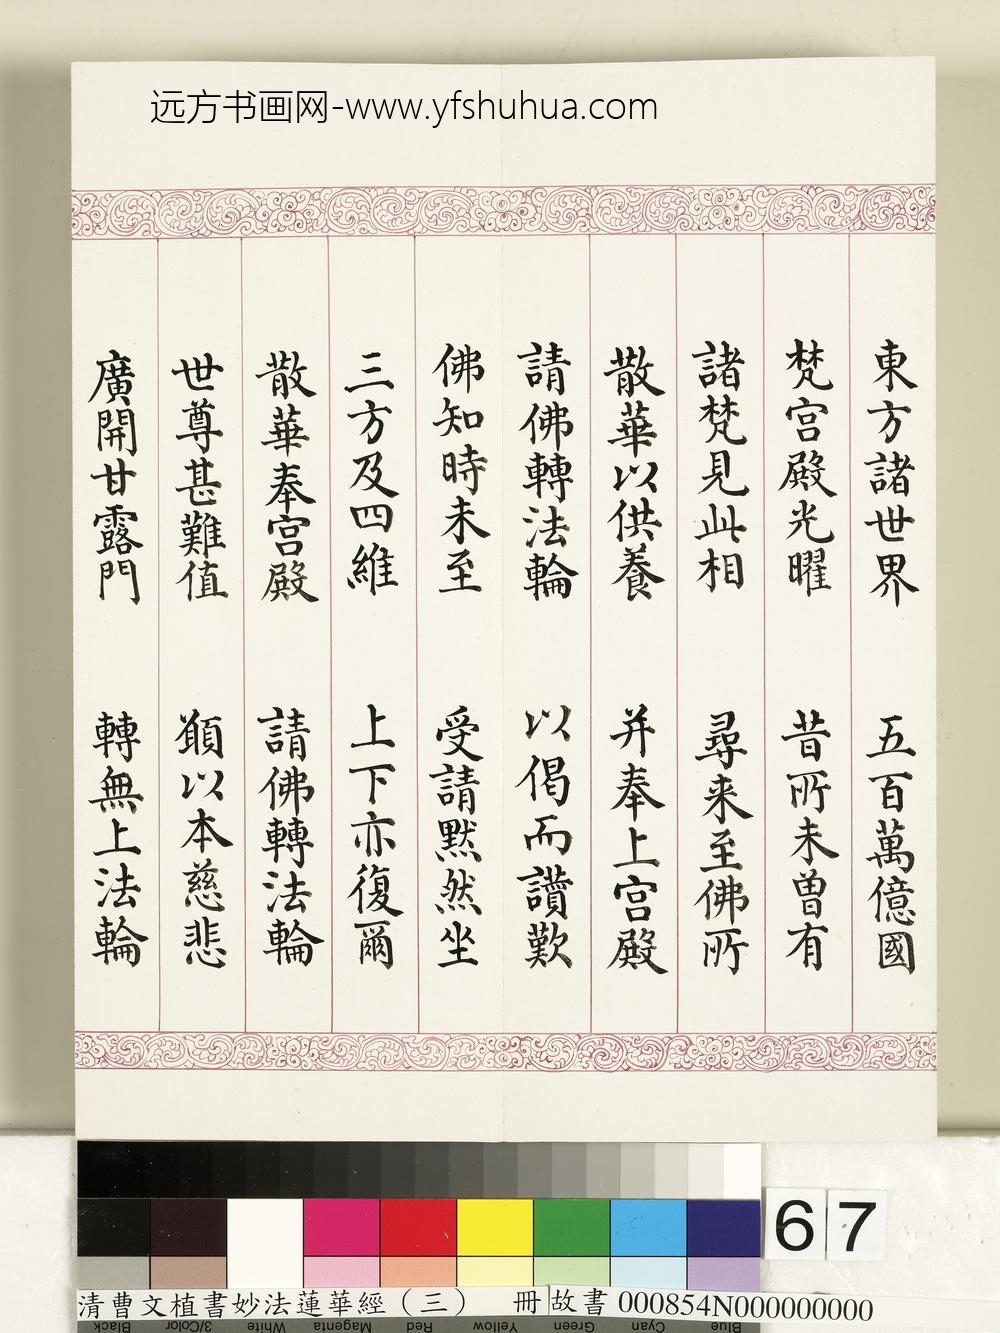 远方书画网-www.yfshuhua.com
東方諸世界 五百萬億國
梵宫殿光曜 昔所未曾有
諸梵見此相 尋来至佛所
散華以供養 并奉上宫殿
請佛轉法輪 以偈而讚歎
佛知時未至 受請默然坐
三方及四維 上下亦復爾
散華奉宫殿 請佛轉法輪
世尊甚難值 願以本慈悲
廣開甘露門 轉無上法輪
67
清曹文植書妙法蓮華經（三） 冊 故書 000854N000000000
Black 3/Color White Magenta Red Yellow Green Cyan Blue